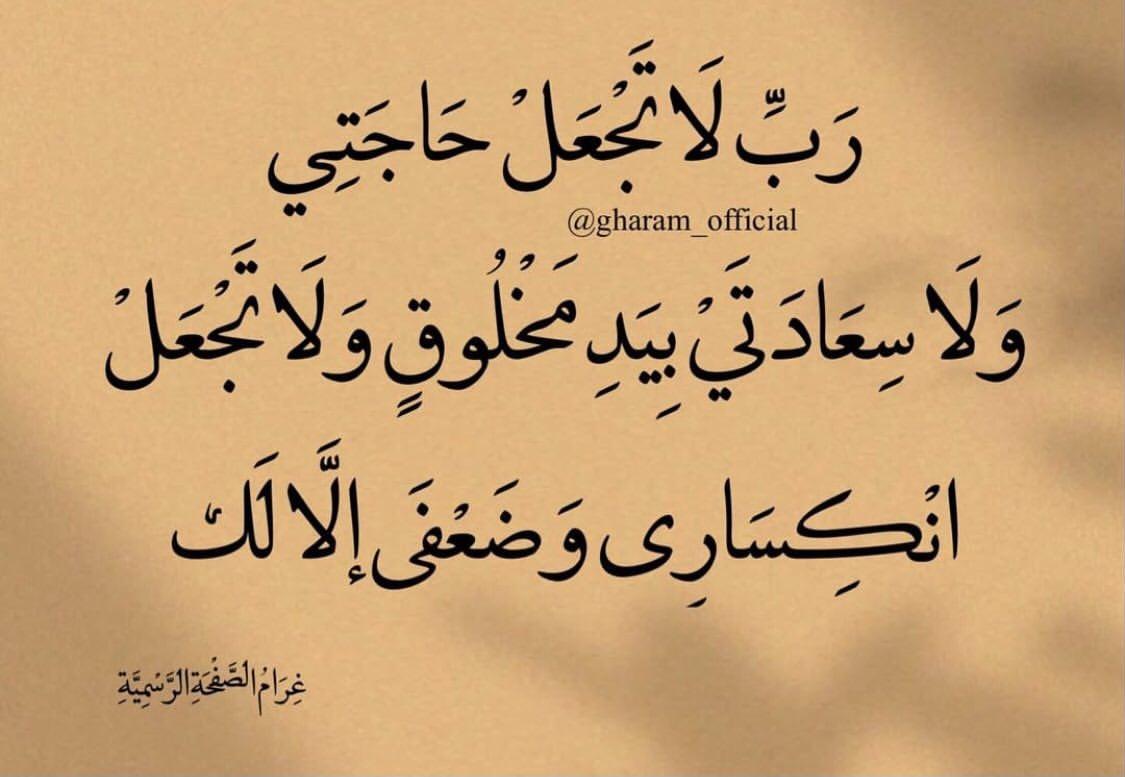 رَبِّ لَا تَجْعَلْ حَاجَتِي
@gharam_official
وَلَا سِعَادَتَيْ بِيَدِ مَخْلُوقٍ وَلَا تَجْعَلْ
انْكِسَارِى وَضَعْفَى إلَّا لَك
غِرَامُ الصَّفْحَةِ الرَّسْمِيَّةِ